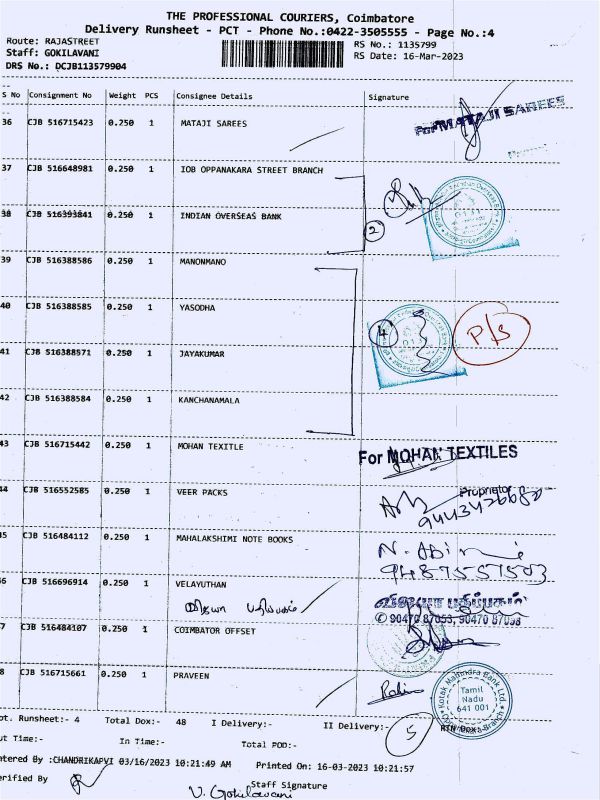 THE PROFESSIONAL COURIERS, Coimbatore
Delivery Runsheet - PCT - Phone No.:0422-3505555 - Page No.:4
Route: RAJASTREET RS No.: 1135799
Staff: GOKILAVANI RS Date: 16-Mar-2023
DRS No.: DCJB113579904
S No Consignment No Weight PCS Consignee Details Signature
36 CJB 516715423 0.250 1 MATAJI SAREES For MATAJI SAREES
37 CJB 516648981 0.250 1 IOB OPPANAKARA STREET BRANCH
38 CJB 516393841 0.250 1 INDIAN OVERSEAS BANK
2
39 CJB 516388586 0.250 1 MANONMANO
40 CJB 516388585 0.250 1 YASODHA
4 P/S
41 CJB 516388571 0.250 1 JAYAKUMAR
42 CJB 516388584 0.250 1 KANCHANAMALA
43 CJB 516715442 0.250 1 MOHAN TEXITLE For MOHAN TEXTILES
44 CJB 516552585 0.250 1 VEER PACKS Proprietor
45 CJB 516484112 0.250 1 MAHALAKSHIMI NOTE BOOKS
9487557503
46 CJB 516696914 0.250 1 VELAYUTHAN
விஜயா பதிப்பகம் விஜயா பதிப்பகம்
✆ 90470 87053, 90470 87058
7 CJB 516484107 0.250 1 COIMBATOR OFFSET
8 CJB 516715661 0.250 1 PRAVEEN
Kotak Mahindra Bank Ltd
Tamil
Nadu
641 001
ot. Runsheet:- 4 Total Dox:- 48 I Delivery:- II Delivery:- 5 RTN Dox:-
ut Time:- In Time:- Total POD:-
ntered By :CHANDRIKAPVI 03/16/2023 10:21:49 AM Printed On: 16-03-2023 10:21:57
erified By Staff Signature
V. Gokilavani